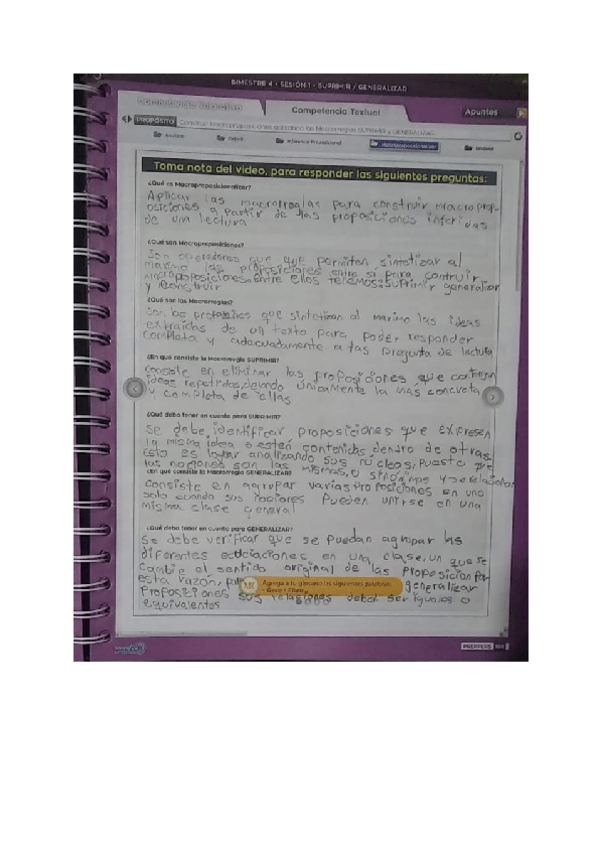 BIMESTRE 4 • SESIÓN 1 • SUPRIMIR / GENERALIZAR
Competencia Textual
Apuntes
PROPÓSITO
Toma nota del video, para responder las siguientes preguntas:
¿Qué es Macroproposicionalizar?
Aplicar las macrorreglas para construir macroprop-
osiciones a partir de las proposiciones inferidas
de una lectura
¿Qué son Macroproposiciones?
Son operadores que que permiten sintetizar al
máximo las proposiciones entre si para contruir
macroproposiciones, entre ellos tenemos: suprimir generalizar
y construir
¿Qué son las Macrorreglas?
Son las que sintetizan al maximo las ideas
extraidas de un texto para poder responder
completa y adecuadamente a las pregunta de lectura
¿En qué consiste la Macrorregla SUPRIMIR?
consiste en eliminar las proposiciones que
ideas repetidas, dejando únicamente la más concreta
y completa de ellas
¿Qué debo tener en cuenta para SUPRIMIR?
se debe identificar proposiciones que expresen
la misma idea o estén contenidas dentro de otras
esto es lograr analizando sus núcleos, puesto que
las nociones son las mismas, o sinonimo y
¿En qué consiste la Macrorregla GENERALIZAR?
Consiste en agrupar varias proposiciones en una
solo cuando sus nociones pueden unirse en una
misma clase general
¿Qué debo tener en cuenta para GENERALIZAR?
Se debe verificar que se puedan agrupar las
diferentes en una clase, un que se
cambie el sentido original de las proposicion por
esta razón, generalizar
Agrega a tu glosario las siguientes palabras:
proposiciones sus relaciones deben ser iguales o
equivalentes
PREPPERS